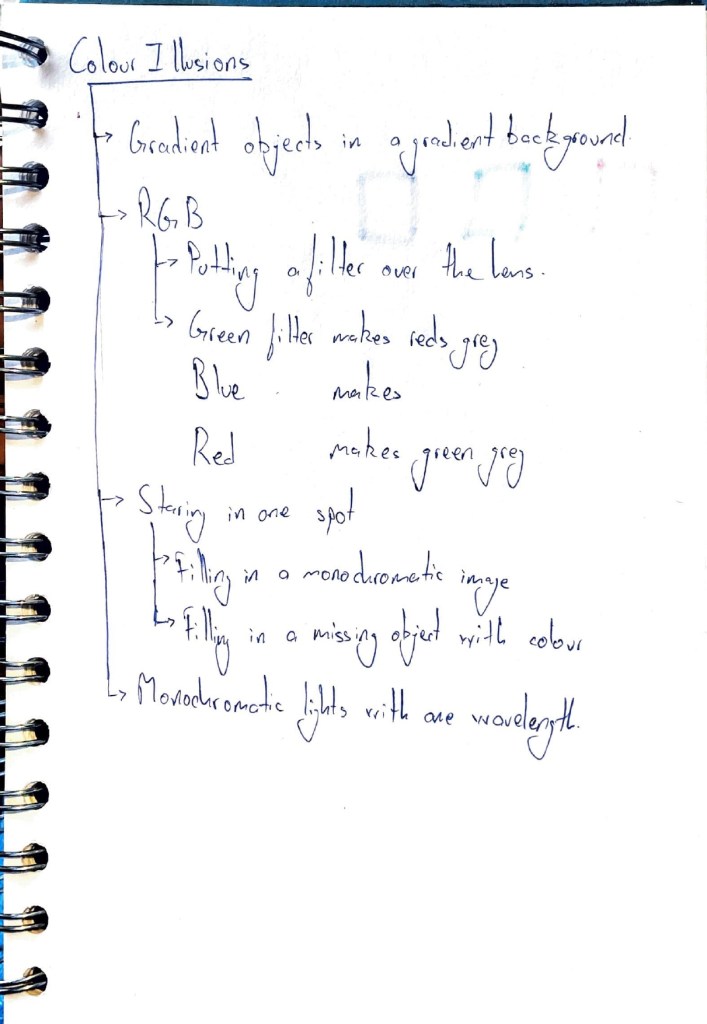 Colour Illusions
Gradient objects in a gradient background.
RGB
Putting a filter over the lens.
Green filter makes reds grey
Blue makes
Red makes green grey
Staring in one spot
Filling in a monochromatic image
Filling in a missing object with colour
Monochromatic lights with one wavelength.